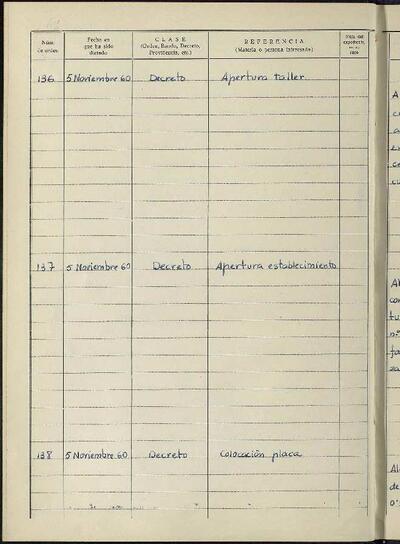 Núm. de orden
Fecha en que ha sido dictado
CLASE
(Orden, Bando, Decreto, Providencia, etc.)
REFERENCIA
(Materia o persona interesada)
136 5 Noviembre 60 Decreto Apertura taller
137 5 Noviembre 60 Decreto Apertura establecimiento
138 5 Noviembre 60 Decreto Colocación placa